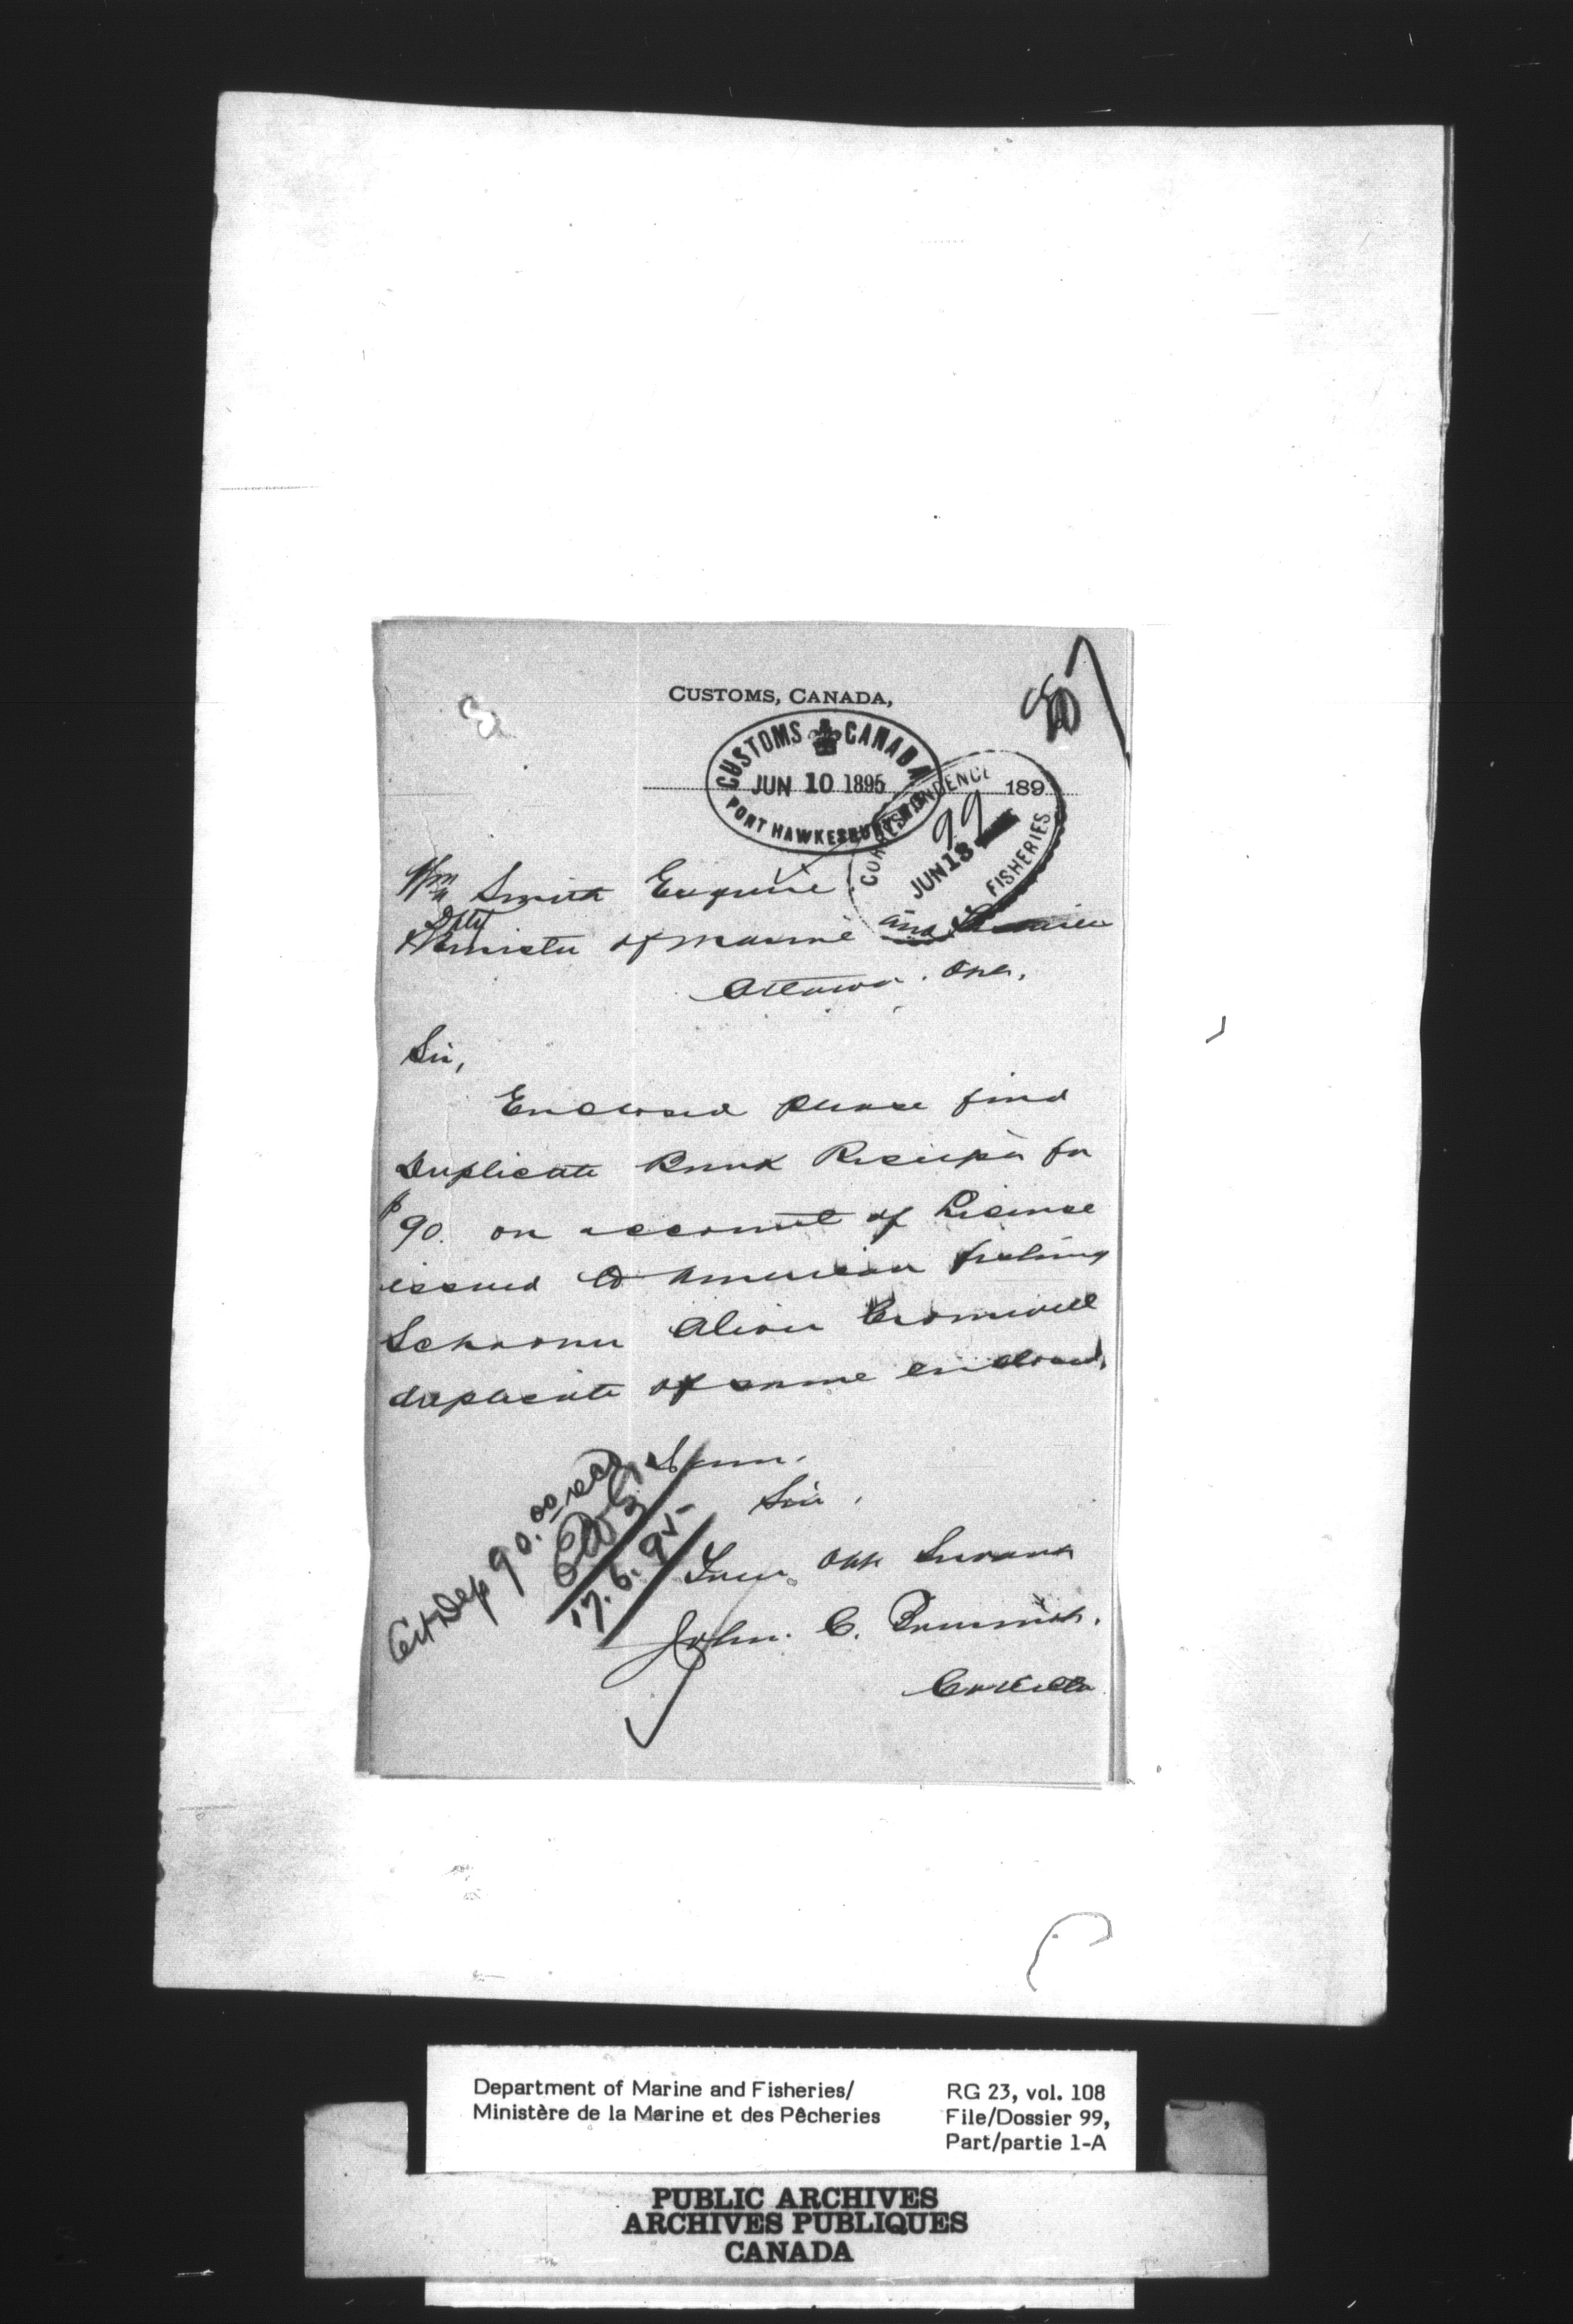 CUSTOMS, CANADA,
CUSTOMS CANADA
JUN 10 1895
PORT HAWKESBURY N.S.
189
CORRESPONDENCE
99
JUN 13
FISHERIES
Wm Smith Esquire
Dpty
Minister of Marine and Fisheries
Ottawa. Ont.
Sir,
Enclosed please find
Duplicate Bank Receipt for
$90. on account of License
issued to American fishing
Schooner Alice Cromwell
duplicate of same enclosed,
I am.
Sir,
Your Obt Servant
John. C.
Collector
Cert Dep 90.00 recd
17.6.95
Department of Marine and Fisheries/
Ministère de la Marine et des Pêcheries
RG 23, vol. 108
File/Dossier 99,
Part/partie 1-A
PUBLIC ARCHIVES
ARCHIVES PUBLIQUES
CANADA